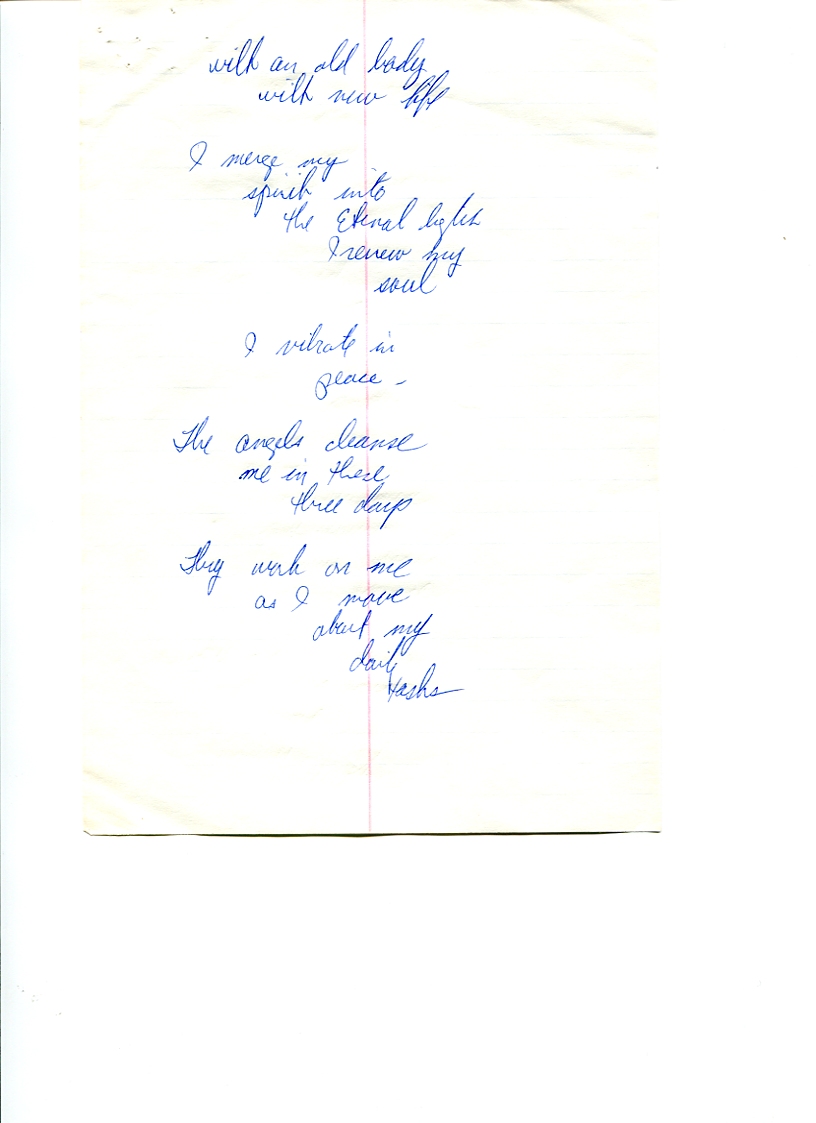 with an old body
with new life
I merge my
spirit into
the Eternal light
I renew my
soul
I vibrate in
peace -
The angels cleanse
me in these
three days
They work on me
as I move
about my
daily
tasks